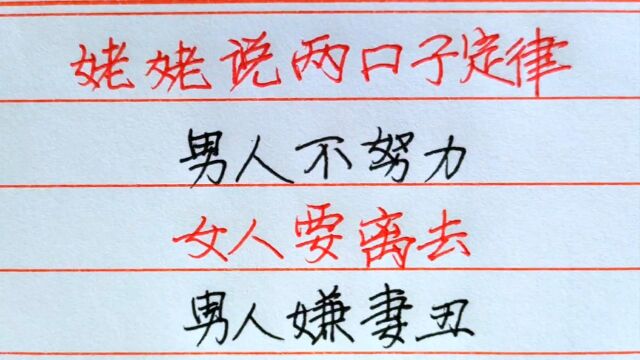 姥姥说两口子定律
男人不努力
女人要离去
男人嫌妻丑